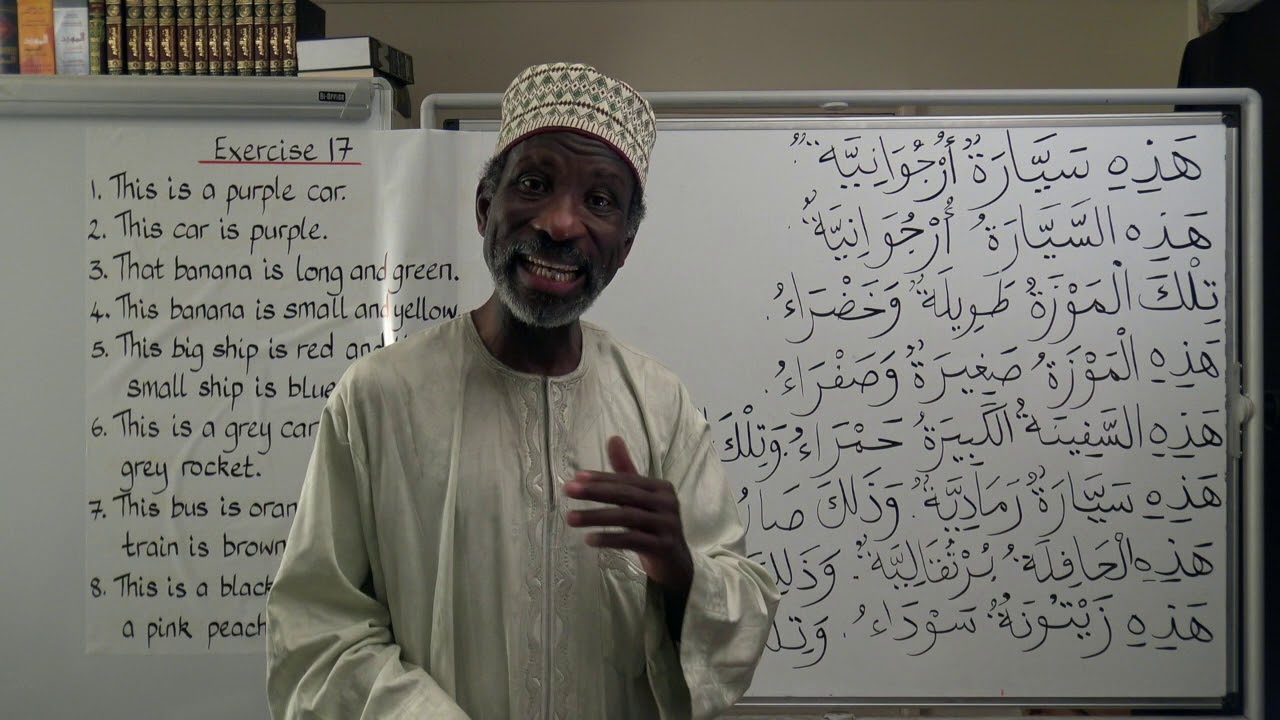 Exercise 17
1. This is a purple car.
2. This car is purple.
3. That banana is long and green.
4. This banana is small and yellow.
5. This big ship is red and
small ship is blue
6. This is a grey car
grey rocket.
7. This bus is oran
train is brown
8. This is a black
a pink peach
هَذِهِ سَيَّارَةٌ أُرْجُوَانِيَّةٌ.
هَذِهِ السَّيَّارَةُ أُرْجُوَانِيَّةٌ.
تِلْكَ الْمَوْزَةُ طَوِيلَةٌ وَخَضْرَاءُ.
هَذِهِ الْمَوْزَةُ صَغِيرَةٌ وَصَفْرَاءُ.
هَذِهِ السَّفِينَةُ الْكَبِيرَةُ حَمْرَاءُ. وَتِلْكَ
هَذِهِ سَيَّارَةٌ رَمَادِيَّةٌ. وَذَلِكَ صَارُ
هَذِهِ الْحَافِلَةُ بُرْتُقَالِيَّةٌ. وَذَلِكَ
هَذِهِ زَيْتُونَةٌ سَوْدَاءُ. وَتِلْكَ